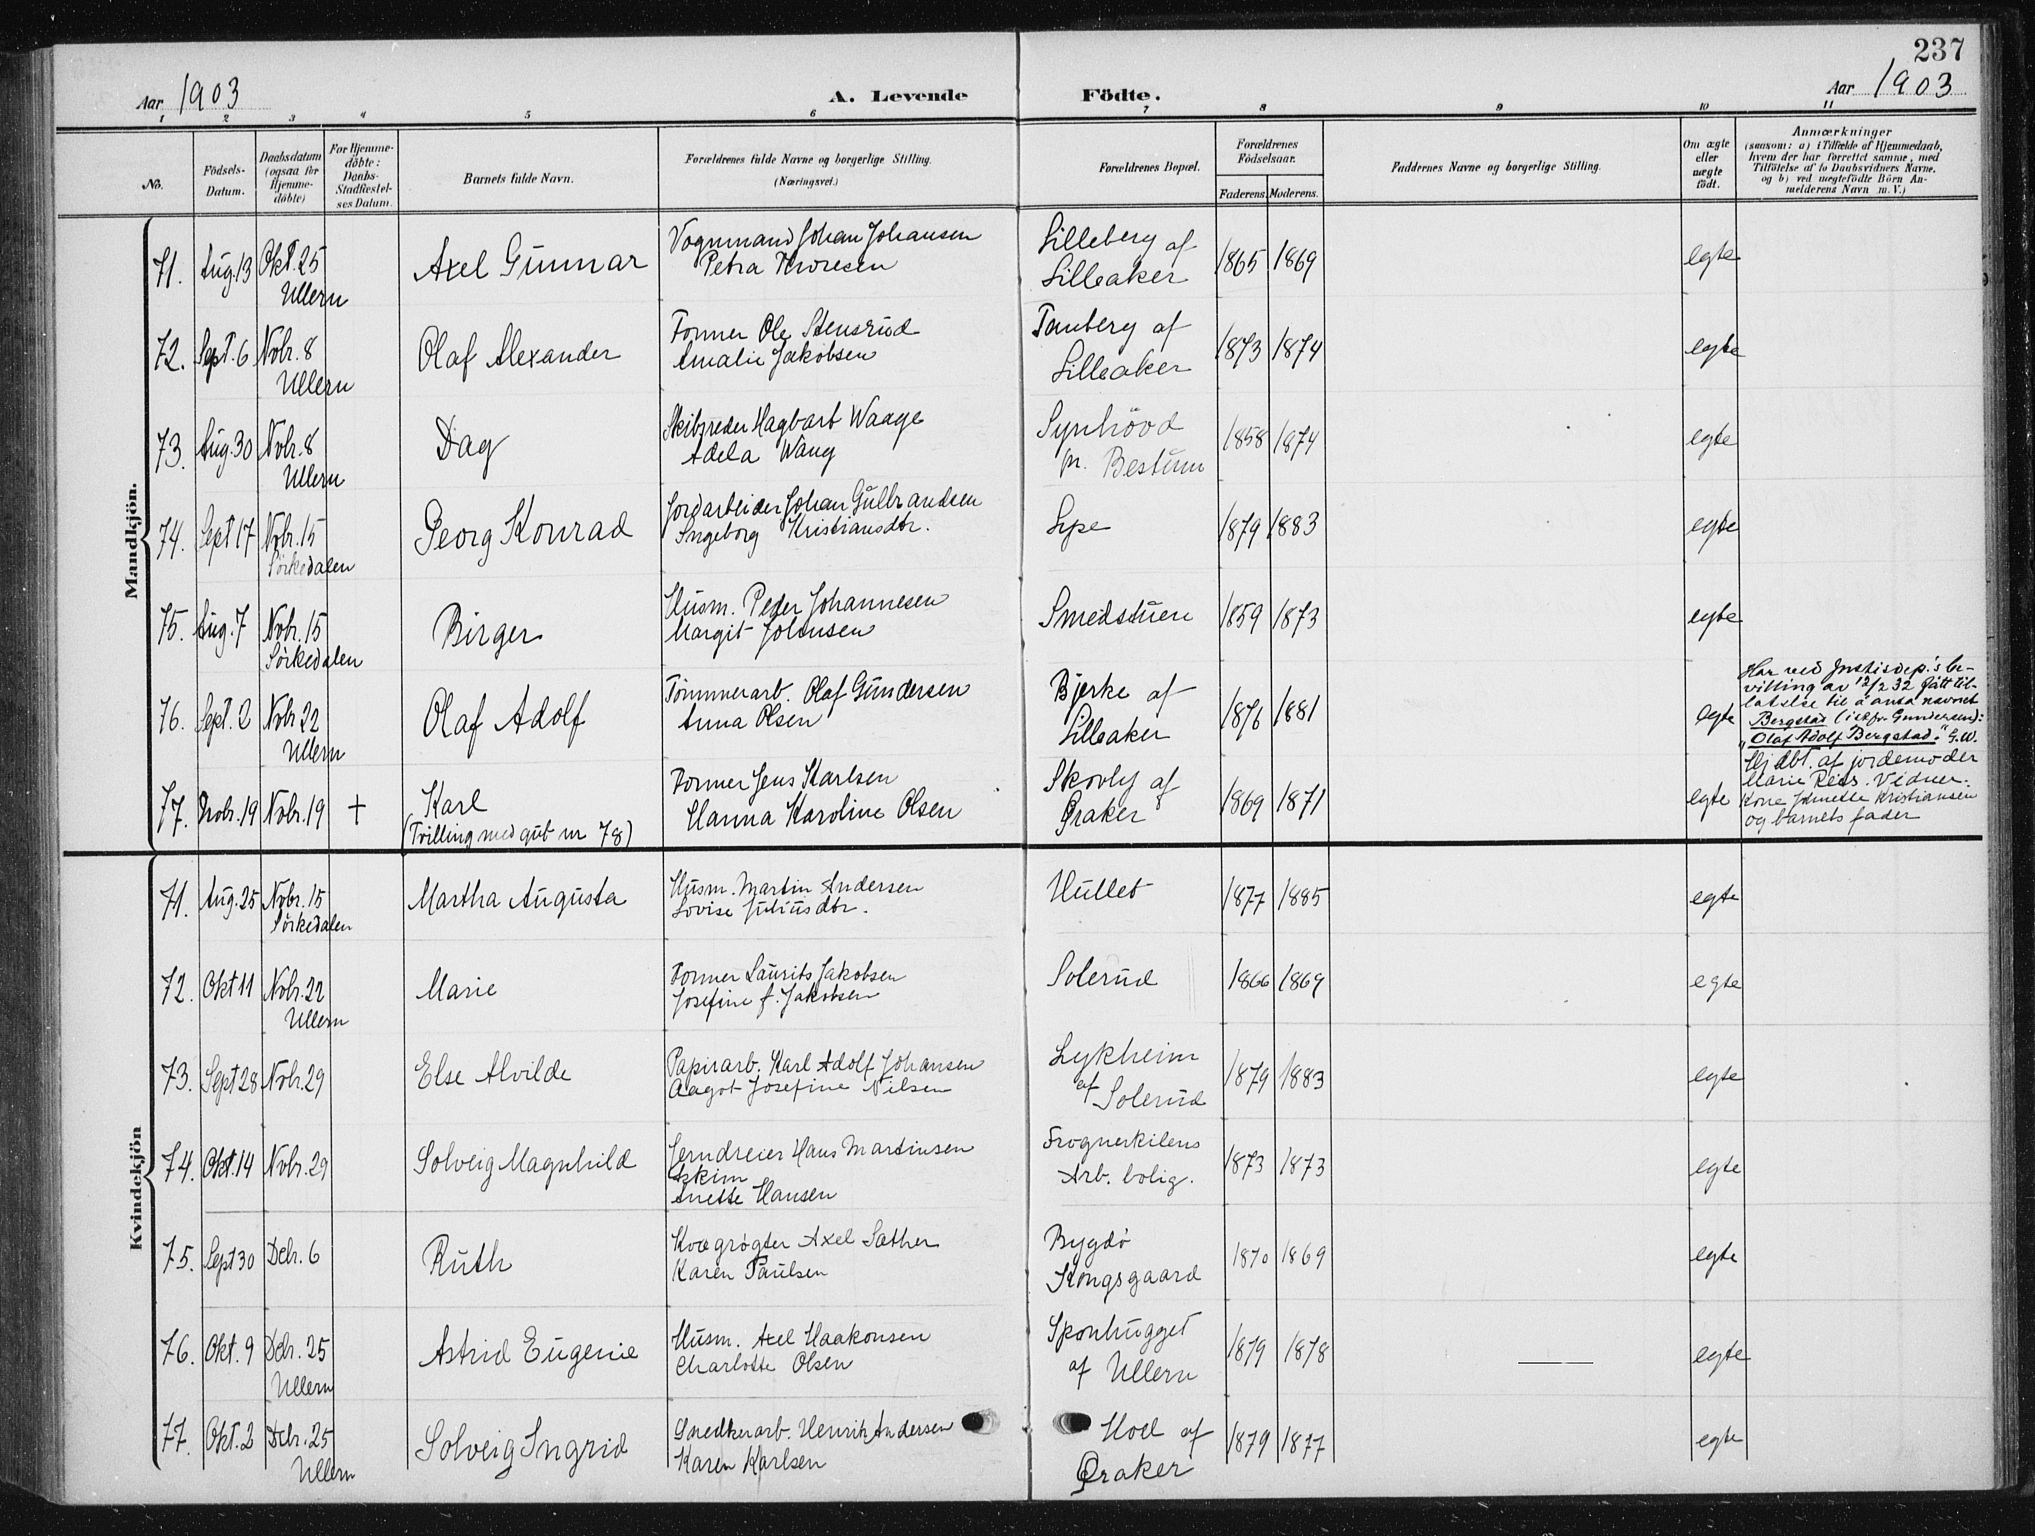 237
Aar 1903
A. Levende Födte.
Aar 1903
1 2 3 4 5 6 7 8 9 10 11
No.
Födsels-
Datum.
Daabsdatum
(ogsaa for
Hjemme-
döbte)
For Hjemme-
döbte:
Daabs-
Stadfæstel-
ses Datum.
Barnets fulde Navn.
Forældrenes fulde Navne og borgerlige Stilling.
(Næringsvei.)
Forældrenes Bopæl.
Forældrenes
Födselsaar.
Faderens. Moderens.
Faddernes Navne og borgerlige Stilling.
Om ægte
eller
uægte
födt.
Anmærkninger
(saasom: a) i Tilfælde af Hjemmedaab,
hvem der har forrettet samme, med
Tilföielse af to Daabsvidners Navne,
og b) ved uægtefödte Börn An-
melderens Navn m. V.)
Mandkjön.
71. Aug. 13 Okt. 25 Axel Gunnar Vognmand Johan Johansen Lilleberg af 1865 1869 egte
Ullern Petra Thoresen Lilleaker
72. Sept. 6 Nobr. 8 Olaf Alexander Former Ole Stensrud Tanberg af 1873 1874 egte
Ullern Amalie Jakobsen Lilleaker
73. Aug. 30 Nobr. 8 Dag Skibsreder Hagbart Waage Synhövd 1858 1874 egte
Ullern Adela Wang pr. Bestum
74. Sept 17 Nobr. 15 Georg Konrad Jordarbeider Johan Gulbrandsen 1879 1883 egte
Sörkedalen Ingeborg Kristiansdtr.
75. Aug. 7 Nobr. 15 Birger Husm. Peder Johannesen Smedstuen 1859 1873 egte
Sörkedalen Margit Johansen
76. Sept. 2 Nobr 22 Olaf Adolf Tömmerarb. Olaf Gundersen Bjerke af 1876 1881 egte
Ullern Anna Olsen Lilleaker
Har ved Justisdep.'s be-
villing av 12/2 32 fått til-
latelse til å anta navnet
Bergstad (istfr. Gundersen):
"Olaf Adolf Bergstad." G.W.
77. Nobr. 19 Nobr. 19 + Karl Former Jens Karlsen Skovly af 1869 1871 egte
(Tvilling med gut nr 78) Hanna Karoline Olsen Øraker
Hj dbt. af jordemoder
Marie Vidner:
Kone Kristiansen
og barnets fader
Kvindekjön
71. Aug. 25 Nobr. 15 Martha Augusta Husm. Martin Andersen Hullet 1877 1885 egte
Sörkedalen Lovise Juliusdtr.
72. Okt 11 Nobr. 22 Marie Former Laurits Jakobsen Solerud 1866 1869 egte
Ullern Josefine f. Jakobsen
73. Sept 28 Nobr. 29 Else Alvilde Papirarb. Karl Adolf Johansen Lykheim 1879 1883 egte
Aagot Josefine Nilsen af Solerud
74. Okt. 14 Nobr. 29 Solveig Magnhild Jerndreier Hans Martinsen Frognerkilens 1873 1873 egte
Askim Arb. bolig.
Anette Hansen
75. Sept 30 Debr. 6 Ruth Kvægrögter Axel Sæther Bygdö 1870 1869 egte
Karen Paulsen Kongsgaard
76. Okt. 9 Debr. 25 Astrid Eugenie Husm. Axel Haakonsen Sponhugget 1879 1878 egte
Ullern Charlotte Olsen af Ullern
77. Okt. 2 Debr. 25 Solveig Ingrid Snedkerarb. Henrik Andersen Hoel af 1879 1877 egte
Ullern Karen Karlsen Øraker